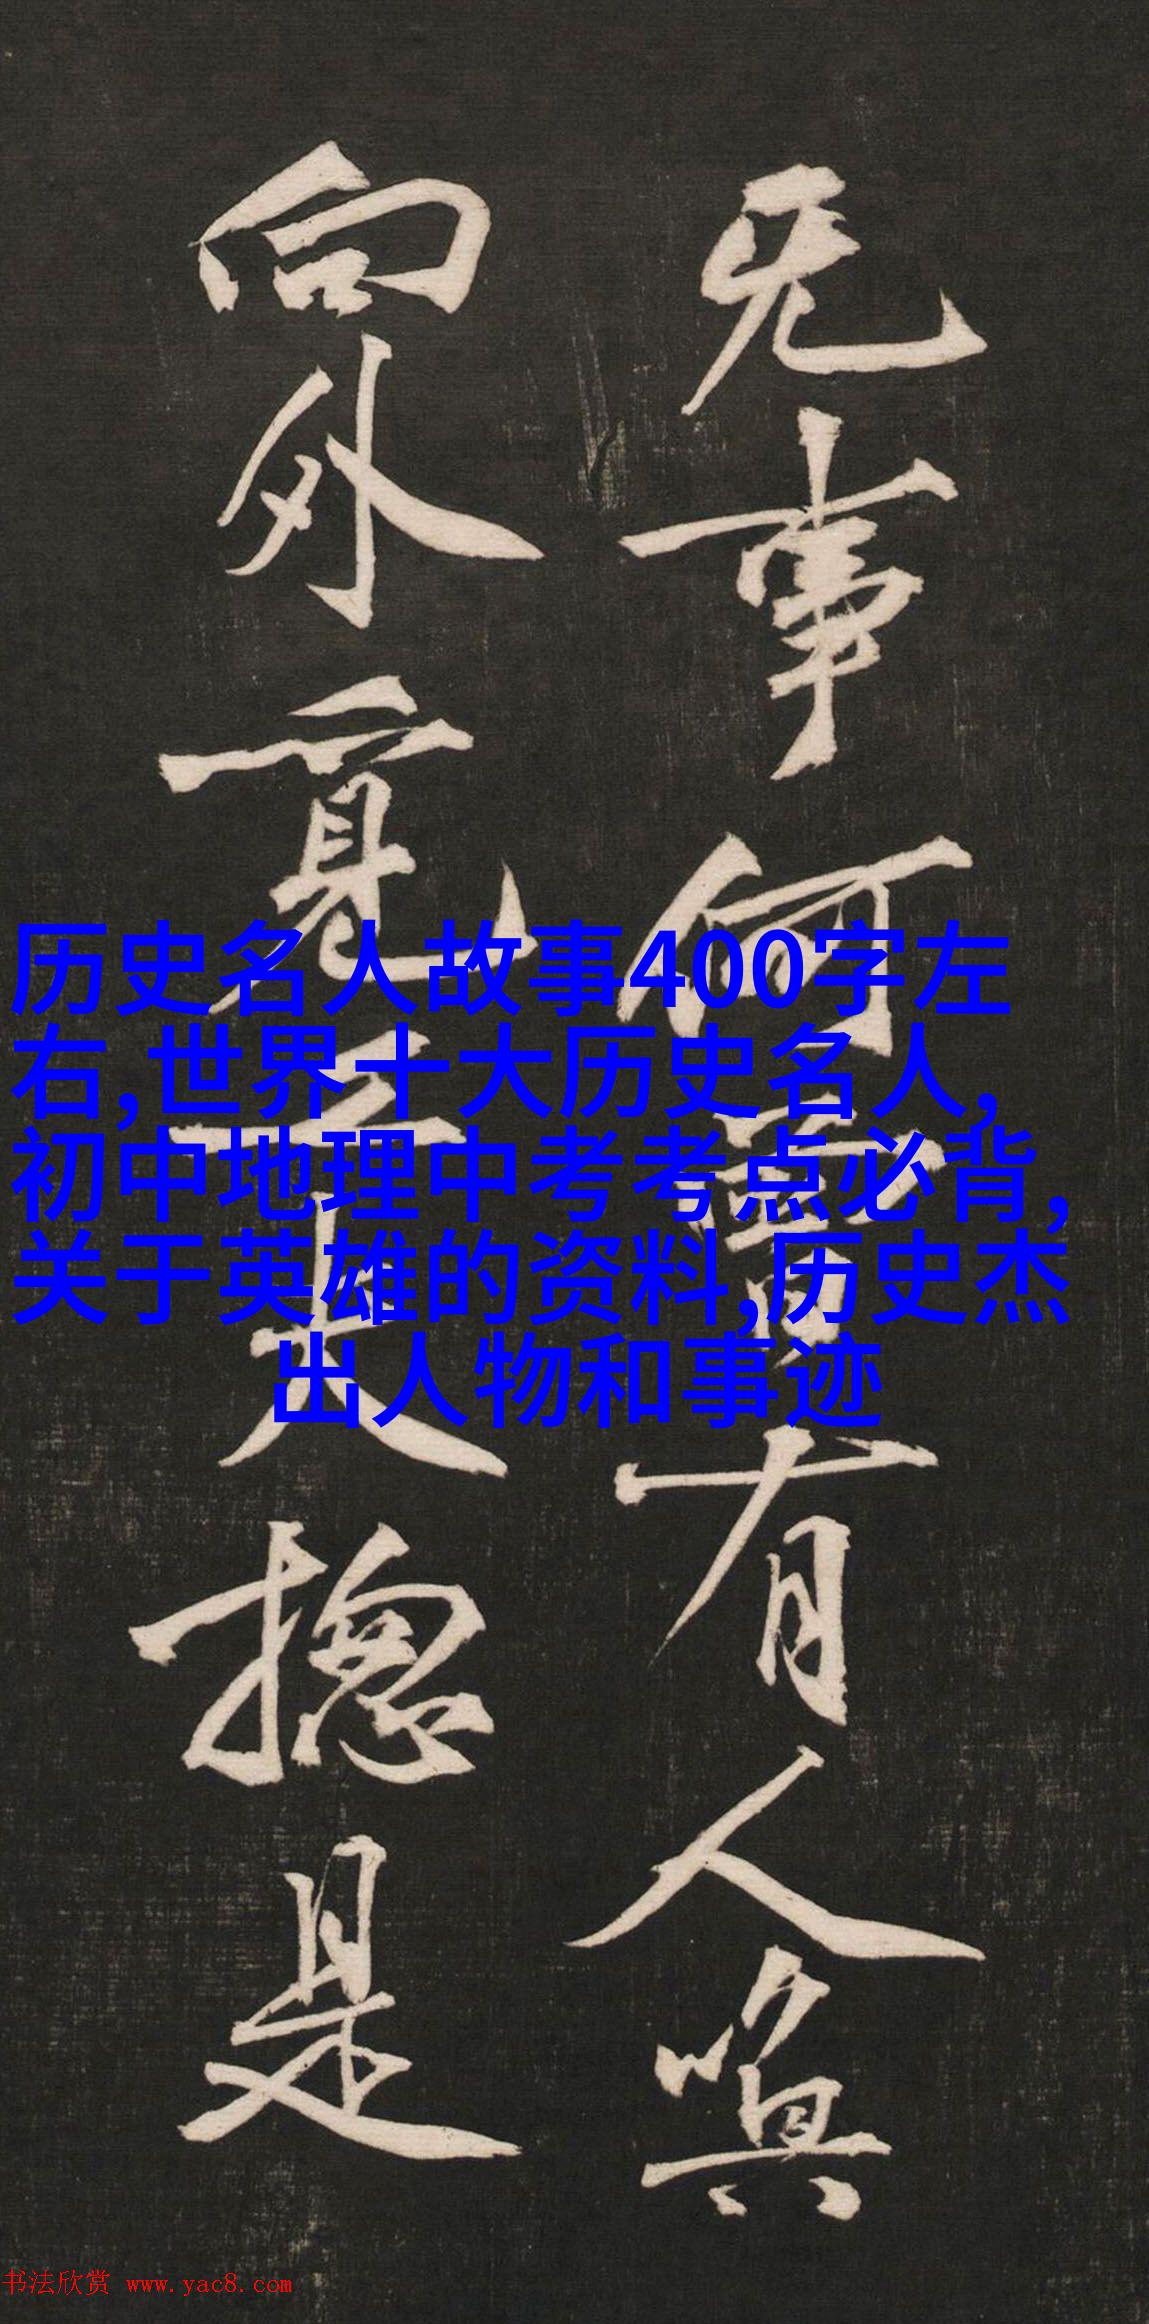 旡事何有人喚
向外覓工夫揔是
历史名人故事400字左
右,世界十大历史名人,
初中地理中考考点必背,
关于英雄的资料,历史杰
出人物和事迹
书法欣赏 www.yac8.com